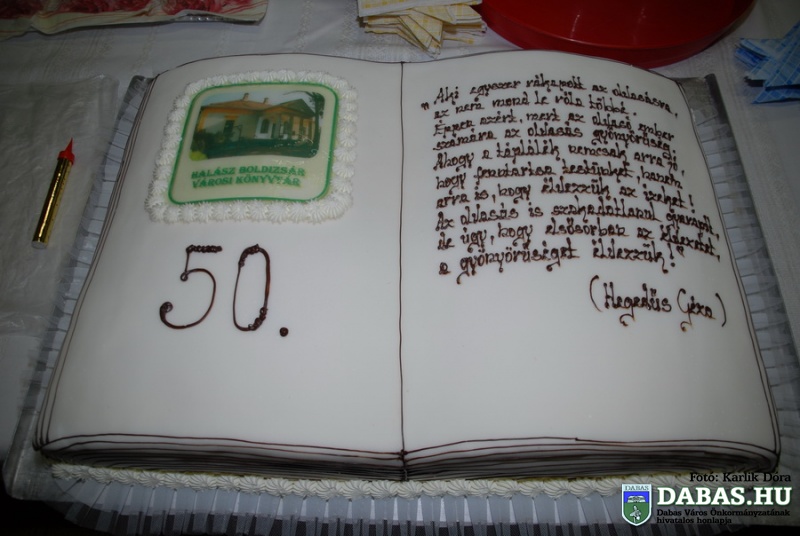 HALÁSZ BOLDIZSÁR
VÁROSI KÖNYVTÁR
50.
"Aki egyszer rákapott az olvasásra,
az nem mond le róla többé.
Éppen azért, mert az olvasó ember
számára az olvasás gyönyörűség.
Ahogy a táplálék nemcsak arra jó,
hogy fenntartsa testünket, hanem
arra is, hogy élvezzük az ízeket!
Az olvasás is szakadatlanul gyarapít,
de úgy, hogy elsősorban az élvezetet,
a gyönyörűséget élvezzük!"
(Hegedűs Géza)
Fotó: Karlik Dóra
DABAS
DABAS.HU
Dabas Város Önkormányzatának
hivatalos honlapja